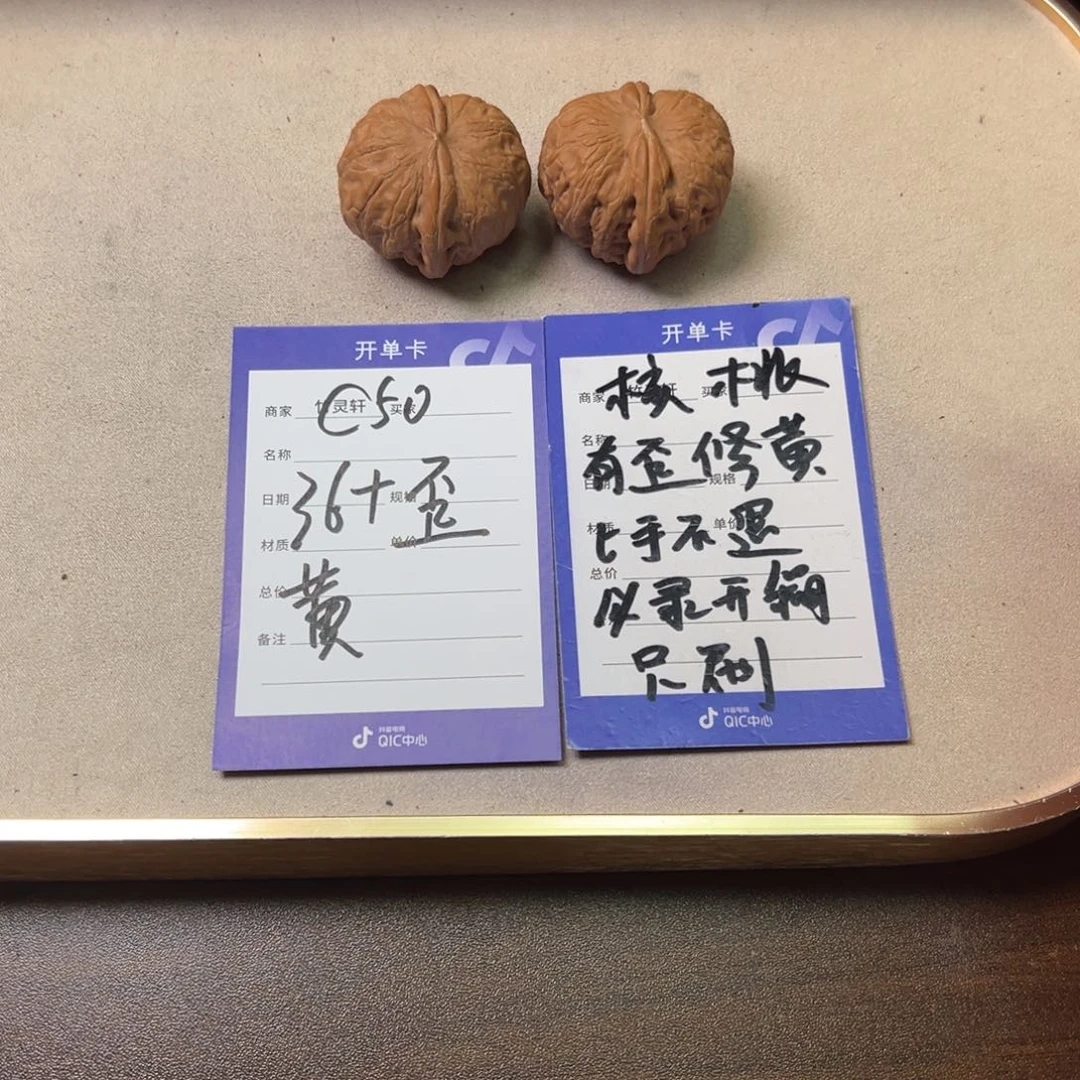 开单卡
商家 竹灵轩 买家
C50
名称
日期 规格
36+歪
材质 单价
总价
黄
备注
抖音电商
QIC中心
开单卡
商家 竹灵轩 买家
核桃
名称
有歪修黄
日期 规格
材质 单价
上手不退
总价
以录开
只刷
抖音电商
QIC中心